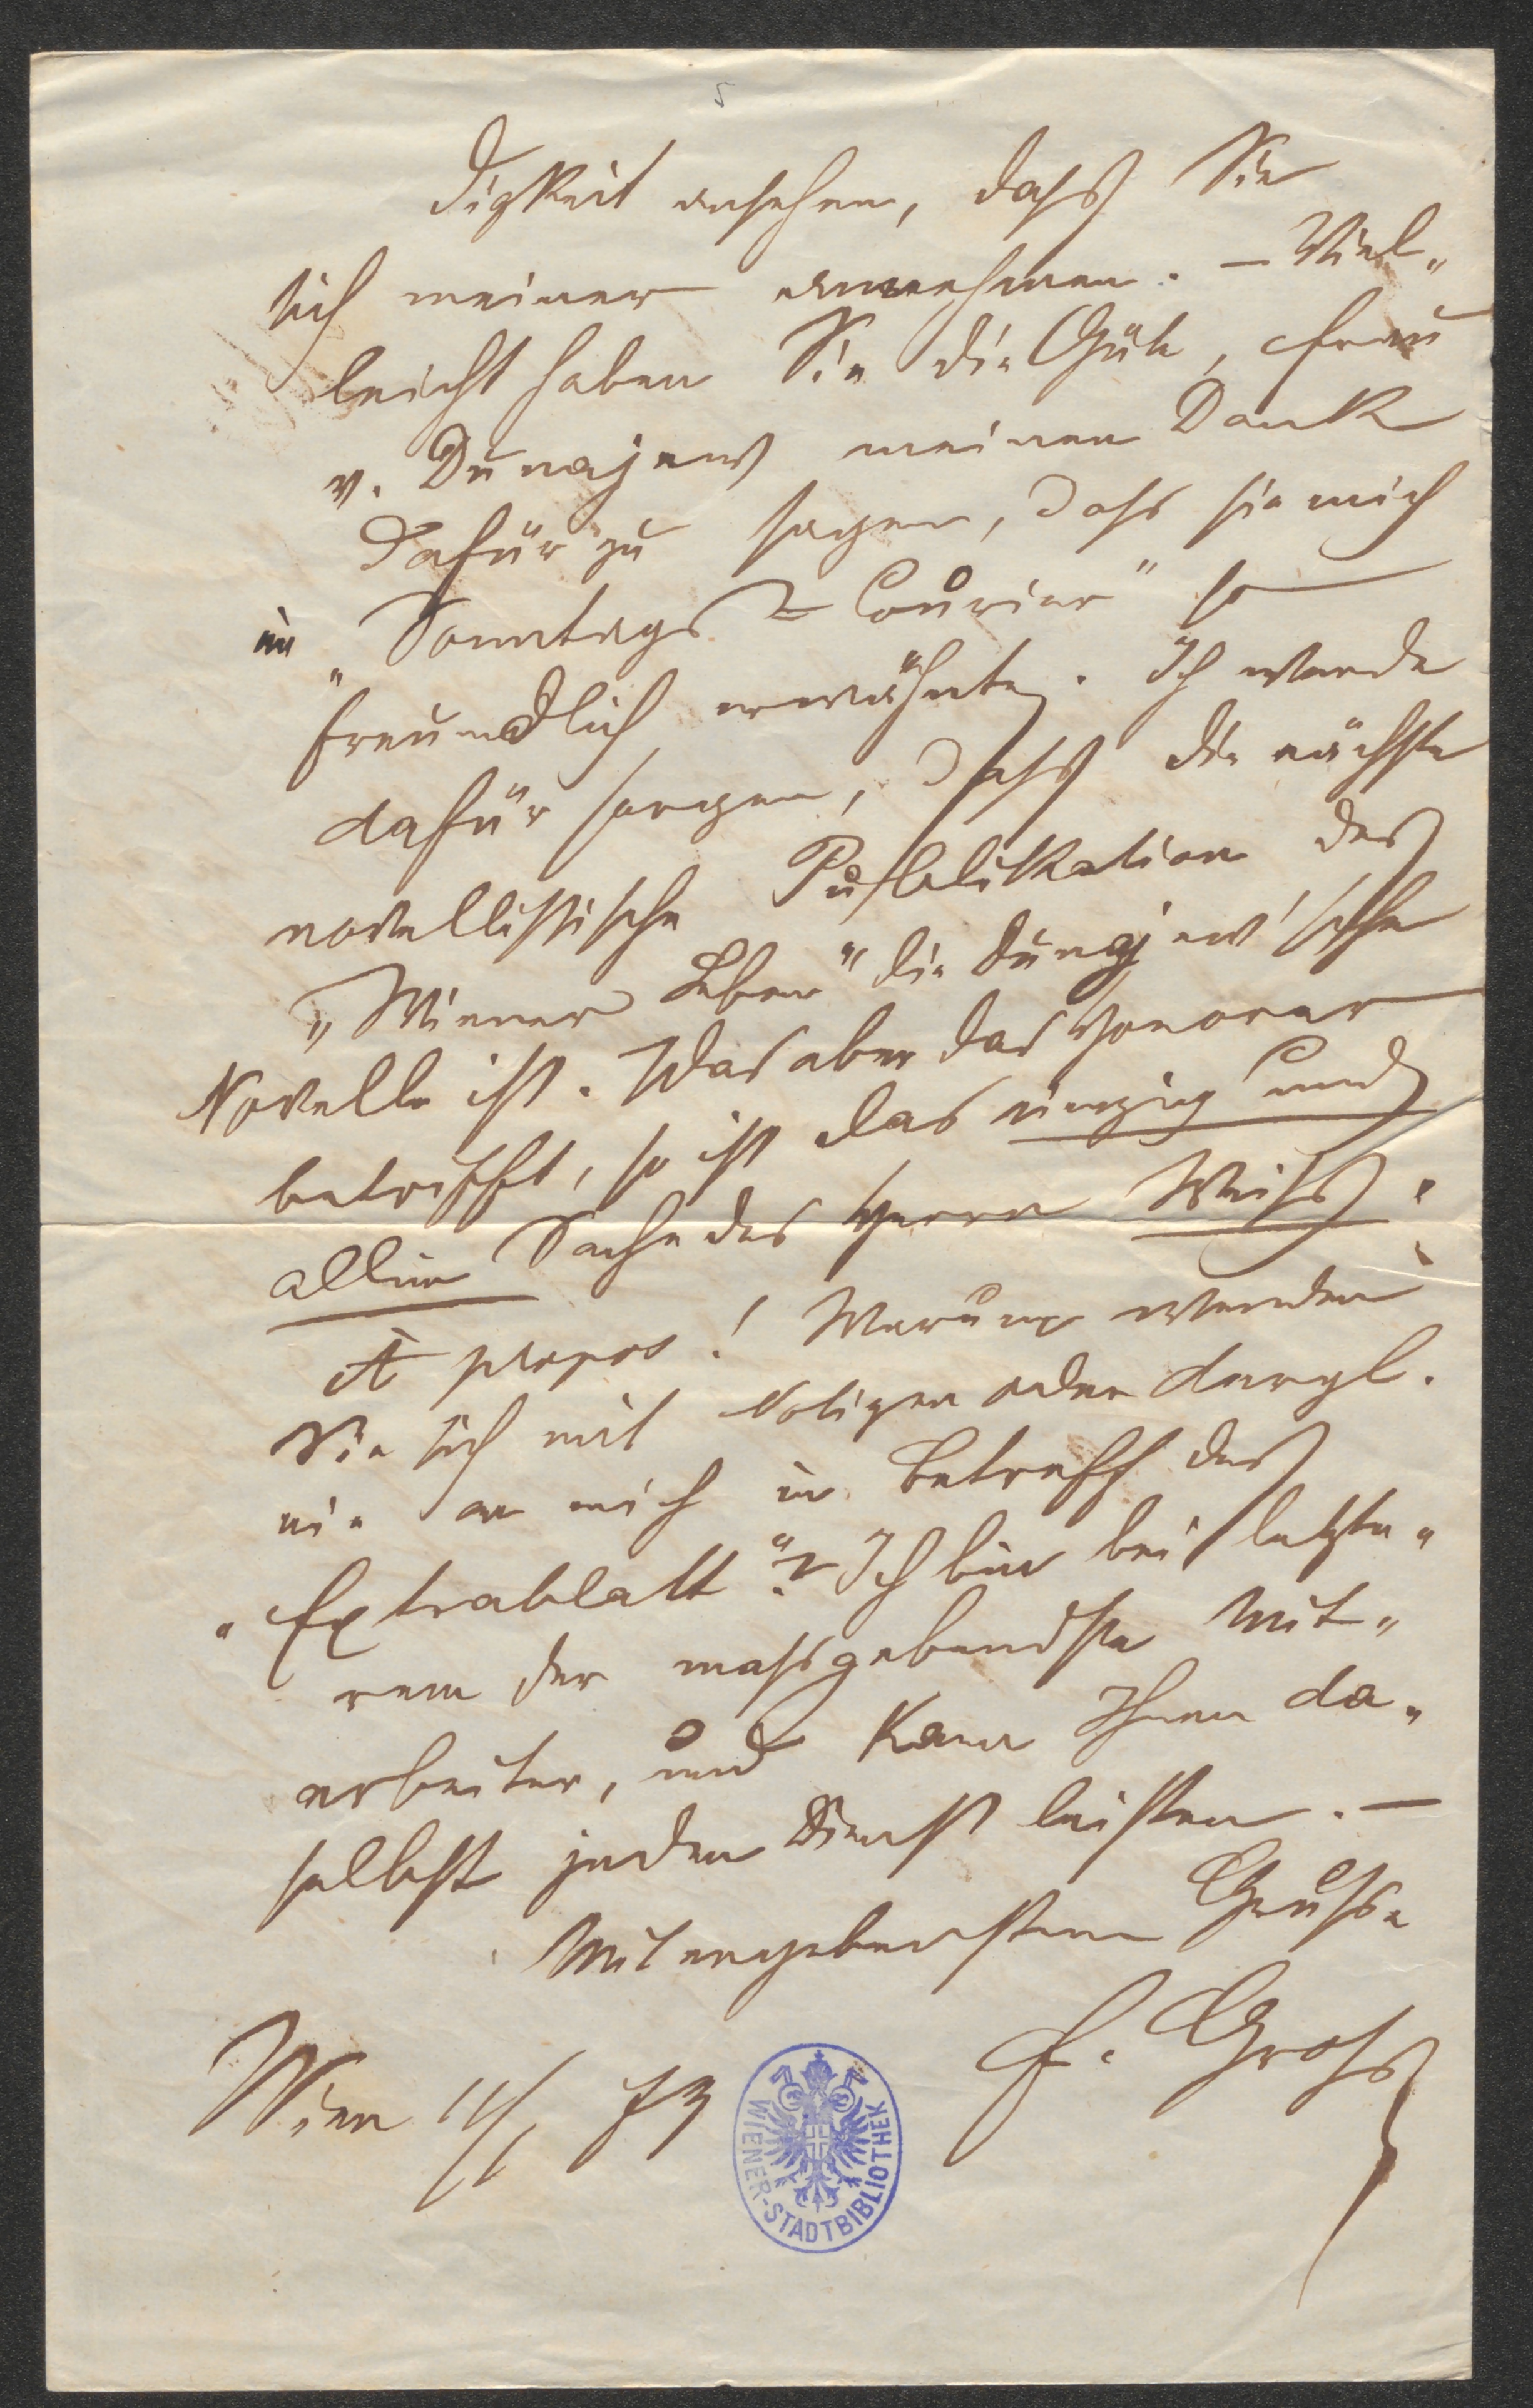 5
digkeit ansehen, daß Sie
sich meiner annehmen. — Viel„
leicht haben Sie die Güte, Frau
v. Dunajew meinen Dank
dafür zu sagen, daß sie mich
im „Sonntags-Courier“ so
freundlich erwähnte. Ich werde
dafür sorgen, daß die nächste
novellistische Publikation des
„Wiener Leben“ die Dunajew'sche
Novelle ist. Was aber das Honorar
betrifft, so ist das einzig und
allein Sache des Herrn Weiß.
À propos! Warum wenden
Sie sich mit Notizen oder dergl.
nie an mich in Betreff des
„Extrablatt“? Ich bin bei letzte„
rem der maßgebendste Mit„
arbeiter, und kann Ihnen da„
selbst jeden Dienst leisten. —
Mit ergebenstem Gruße
F. Groß
Wien 11/1 73
WIENER-STADTBIBLIOTHEK